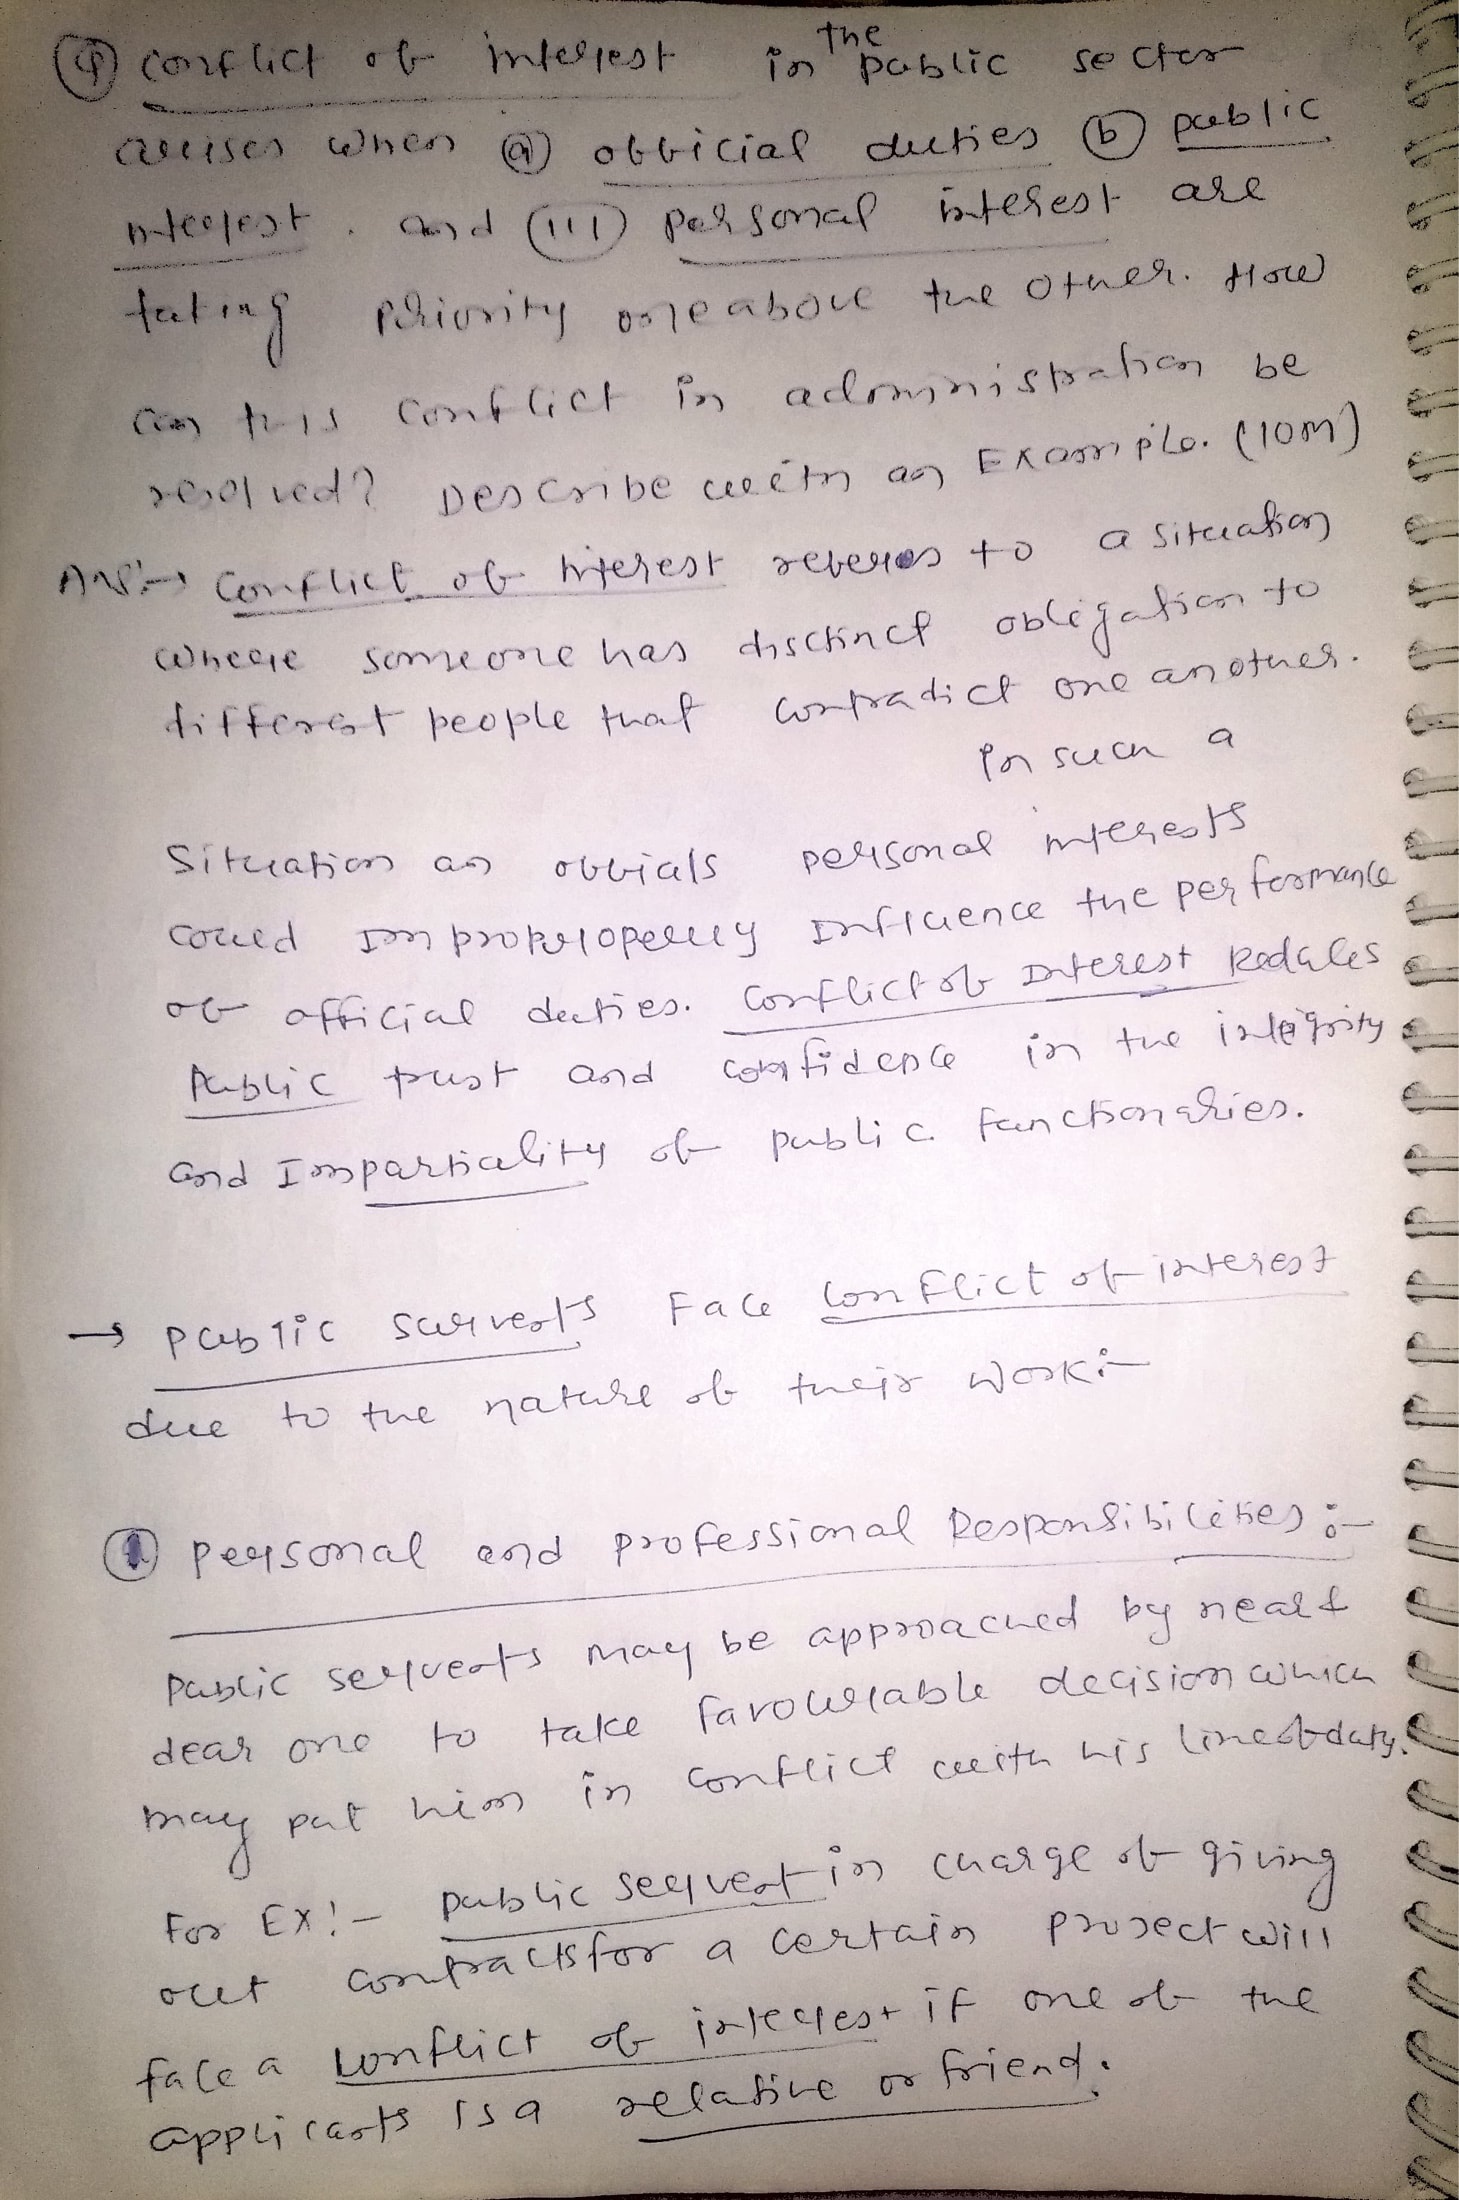 ④ conflict of interest in the public sector
arises when ⓐ official duties ⓑ public
interest and (iii) personal interest are
taking priority one above the other. How
can this conflict in administration be
resolved? Describe with an Example. (10m)
Ans:→ Conflict of interest referes to a situation
where someone has disctinct obligation to
different people that contradict one another.
In such a
Situation an officials personal interests
could Improperly Influence the performance
of official duties. Conflict of Interest Reduces
Public trust and confidence in the integrity
and Impartiality of public functionaries.
→ public servents Face Conflict of interest
due to the nature of their work:-
① personal and professional Responsibilities:-
Public servents may be approached by near &
dear one to take favourable decision which
may put him in conflict with his line of duty.
For Ex:- public servent in charge of giving
out contracts for a certain project will
face a conflict of interest if one of the
applicants is a relative or friend.